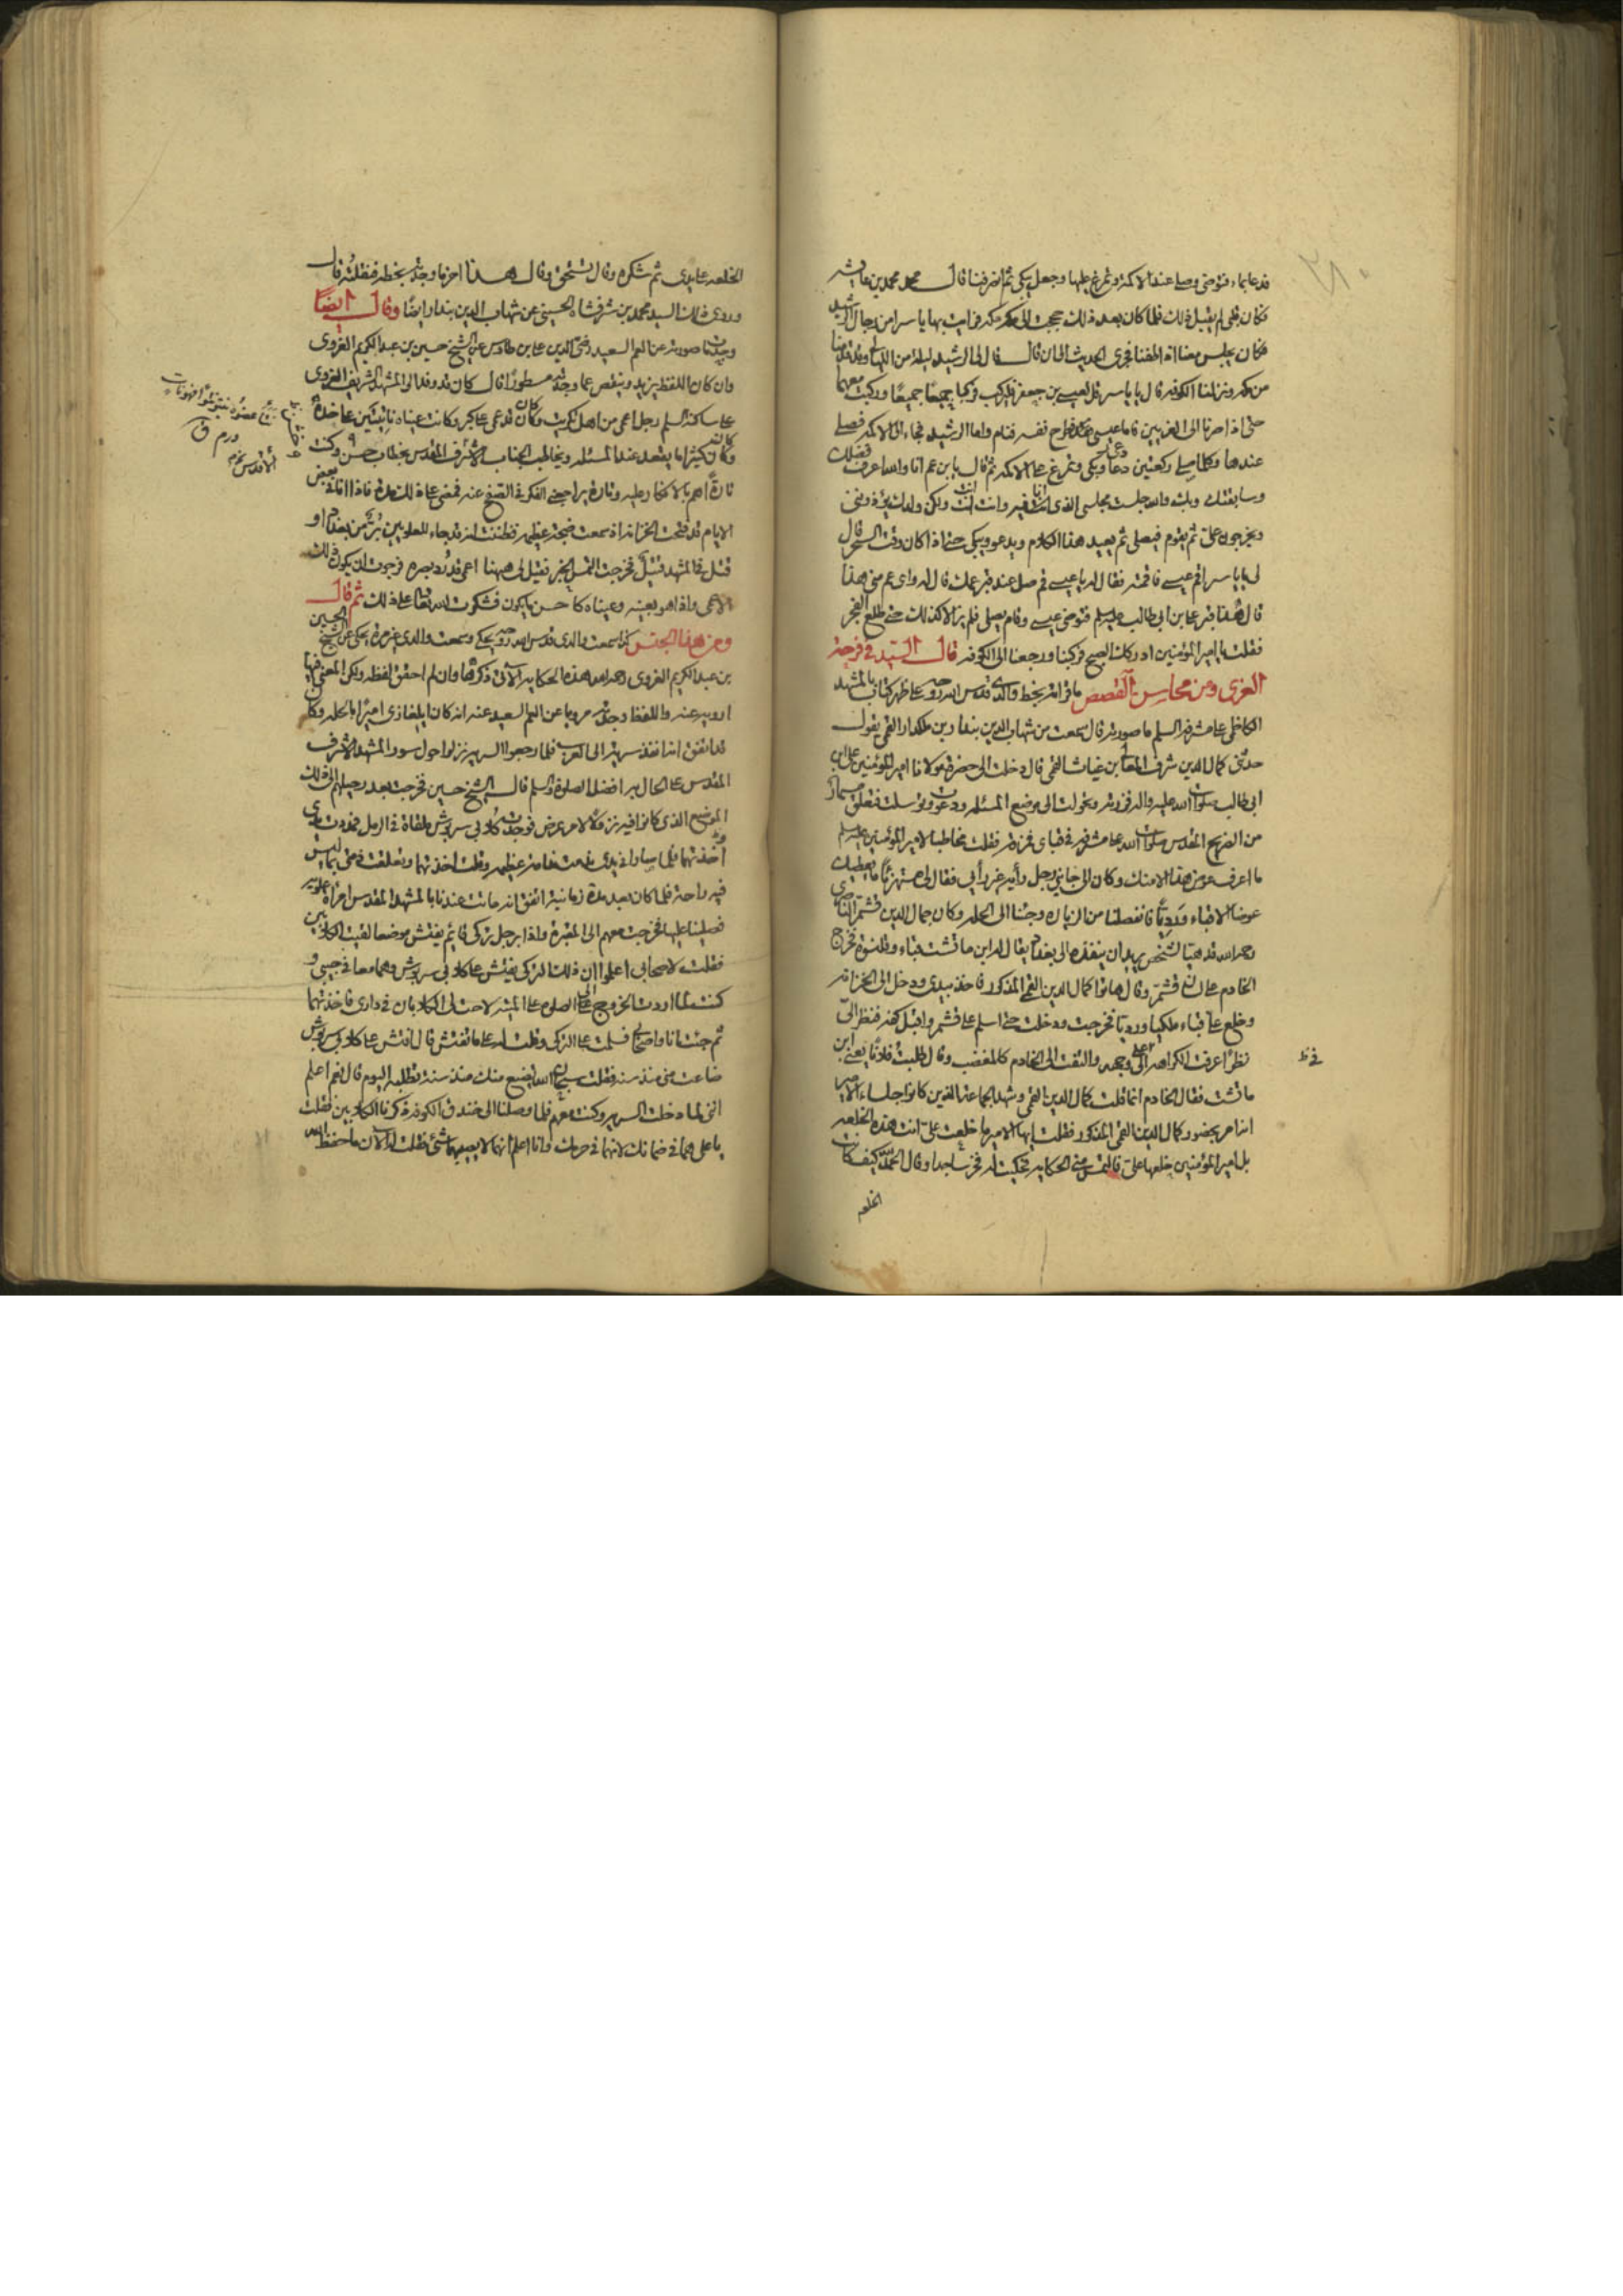 ٢٨٠
فدعا بماء فتوضى وصلى عند الاكمة وتمرغ عليها وجعل يبكى ثم انصرفنا قال محمد بن عائشه
فكان قلبى لم يقبل ذلك فلما كان بعد ذلك حججت الى مكة فرايت بها ياسرا من رجال الرشيد
فكان يجلس معنا اذا طفنا فجرى الحديث الى ان قال قال لى الرشيد ليلة من الليالى وقد قدمنا
من مكة ونزلنا الكوفه قال يا ياسر قل لعيسى بن جعفر فليركب فركبا جميعا وركبت معهما
حتى اذا صرنا الى الغريين فاما عيسى فطرح نفسه فنام واما الرشيد فجاء الى الاكمه فصلى
عندها وكلما صلى ركعتين دعا وبكى وتمرغ على الاكمه ثم قال يا بن عم انا والله اعرف فضلك
وسابقتك وبك والله جلست مجلسى الذى انا فيه وانت انت ولكن ولدك يؤذوننى
ويخرجون على ثم يقوم فيصلى ثم يعيد هذا الكلام ويدعو ويبكى حتى اذا كان وقت السحر قال
لى يا ياسر اقم عيسى فاقمته فقال له يا عيسى قم صل عند قبر ابن عمك قال له واى عم متى هذا
قال هذا قبر على بن ابى طالب عليه السلم فتوضى عيسى وقام يصلى فلم يزالا كذلك حتى طلع الفجر
فقلت يا امير المؤمنين ادركك الصبح فركبنا ورجعنا الى الكوفه قال السيد فى فرحة
الغرى ومن محاسن القصص ما قراته بخط والدى قدس الله روحه على ظهر كتاب بالمشهد
الكاظمى على مشرفه السلم ما صورته قال سمعت من شهاب الدين بندار بن ملكدار القمى يقول
حدثنى كمال الدين شرف المعالى بن غياث القمى قال دخلت الى حضرة مولانا امير المؤمنين على بن
ابى طالب صلوات الله عليه والہ فزرته وتحولت الى موضع المسئله ودعوت وتوسلت فتعلق مسمار
من الضريح المقدس صلوات الله على مشرفه فى قباى فمزقه فقلت مخاطبا لامير المؤمنين عليه السلم
ما اعرف عوض هذا الا منك وكان الى جانبى رجل رأيه غير رأيى فقال لى مستهزئا ما يعطيك
عوضه الا قباء ورديا فانفصلنا من الزياره وجئنا الى الحله وكان جمال الدين قشتمر الناصرى
رحمه الله قد هيأ لشخص يريد ان ينفذه الى بغداد يقال له ابن ماتشت قباء وقلنسوة فخرج
الخادم على لسان قشتمر وقال هاتوا كمال الدين القمى المذكور فاخذ بيدى ودخل الى الخزانه
وخلع على قباء ملكيا ورديا فخرجت ودخلت حتى اسلم على قشتمر واقبل كفه فنظر الى
نظرا اعرف الكراهه فى وجهه والتفت الى الخادم كالمغضب وقال طلبت فلانا يعنى ابن
ماتشت فقال الخادم انما قلت كمال الدين القمى وشهد الجماعة الذين كانوا جلساء الامير
انه امر بحضور كمال الدين القمى المذكور فقلت ايها الامير ما خلعت على انت هذه الخلعه
بل امير المؤمنين خلعها على فالتمس منى الحكايه فحكيت له فخر ساجدا وقال الحمد لله كيف كانت
الخلعه
الخلعه على يدى ثم شكره وقال تستحق وقال هذا اخر ما وجد بخطه فنقلته قال
وروى ذلك السيد محمد بن شرفشاه الحسينى عن شهاب الدين بندار ايضا وقال ايضا
وجدت ما صورته عن العم السعيد رضى الدين على بن طاوس عن الشيخ حسين بن عبد الكريم الغروى
وان كان اللفظ يزيد وينقص عما وجدته مسطورا قال كان قد وفد الى المشهد الشريف الغروى
على ساكنه السلم رجل اعمى من اهل تكريت وكان قد عمى على كبر وكانت عيناه ناتئتين على خده
وكان كثيرا ما يقعد عند المسئله ويخاطب الجناب الاشرف المقدس بخطاب حسن وكنت
تارة اهم بالانكار عليه وتارة يراجعنى الفكر فى الصفح عنه فمضى على ذلك مدة فاذا انا فى بعض
الايام قد فتحت الخزانه اذ سمعت ضجة عظيمه فظننت انه قد جاء للعلويين بر من بغداد او
قتل فى المشهد قتيل فخرجت التمس الخبر فقيل لى ههنا اعمى قد رد بصره فرجوت ان يكون ذلك
الاعمى واذا هو بعينه وعيناه كاحسن ما يكون فشكرت الله تعالى على ذلك ثم قال
ومن هذا الجنس كنت سمعت والدى قدس الله روحه يحكى وسمعت والدى غير مرة يحكى عن الشيخ الحسين
بن عبد الكريم الغروى رحمه الله هذه الحكايه الآتى ذكرها وان لم احقق لفظه ولكن المعنى فيها
ارويه عنه واللفظ وجدته مرويا عن العم السعيد عنه انه كان ايلغازى اميرا بالحله وكان
قد اتفق انه انفذ سريه الى العرب فلما رجعوا السريه نزلوا حول سور المشهد الاشرف
المقدس على الحال به افضل الصلوة والسلم قال الشيخ حسين فخرجت بعد رحيلهم الى ذلك
الموضع الذى كانوا فيه نزولا لامر عرض فوجدت كلابى سربوش ملقاة فى الرمل فمددت يدى
اخذتهما فلما صارا فى يدى ندمت ندامة عظيمه وقلت اخذتهما وتعلقت ذمتى بما ليس
فيه راحة فلما كان بعد مدة زمانية اتفق انه ماتت عندنا بالمشهد المقدس امرأة علويه
فصلينا عليها فخرجت معهم الى المقبرة واذا برجل تركى قائم يفتش موضعا لقيت الكلابين
فقلت لاصحابى اعلموا ان ذلك التركى يفتش على كلابى سربوش وهما معى فى جيبى و
كنت لما اردت الخروج الى الصلوه على الميته لاحت لى الكلابان فى دارى فاخذتهما
ثم جئت انا واصحابى فسلمت على التركى وقلت له على ما تفتش قال افتش على كلابى سربوش
ضاعت منى منذ سنه فقلت سبحان الله يضيع منك منذ سنة تطلبه اليوم قال نعم اعلم
اننى لما دخلت السريه وكنت معهم فلما وصلنا الى خندق الكوفة ذكرنا الكلابين فقلت
يا على هما فى ضمانك لانهما فى حرمك وانا اعلم انهما لا يصيبهما شئ فقلت له الان ما حفظ الله